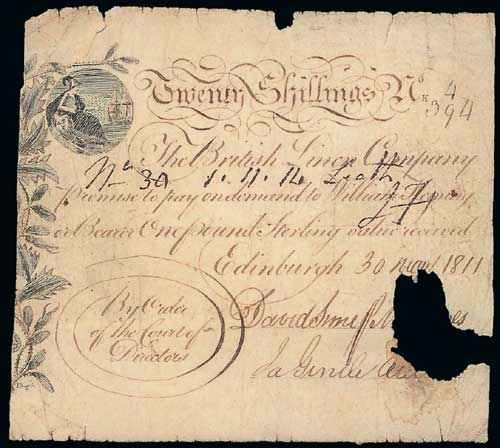 Twenty Shillings No
K 4
394
The British Linen Company
No 30
promise to pay on demand to William
or Bearer One pound Sterling value received
Edinburgh 30 1811
By Order
of the Court of
Directors
David